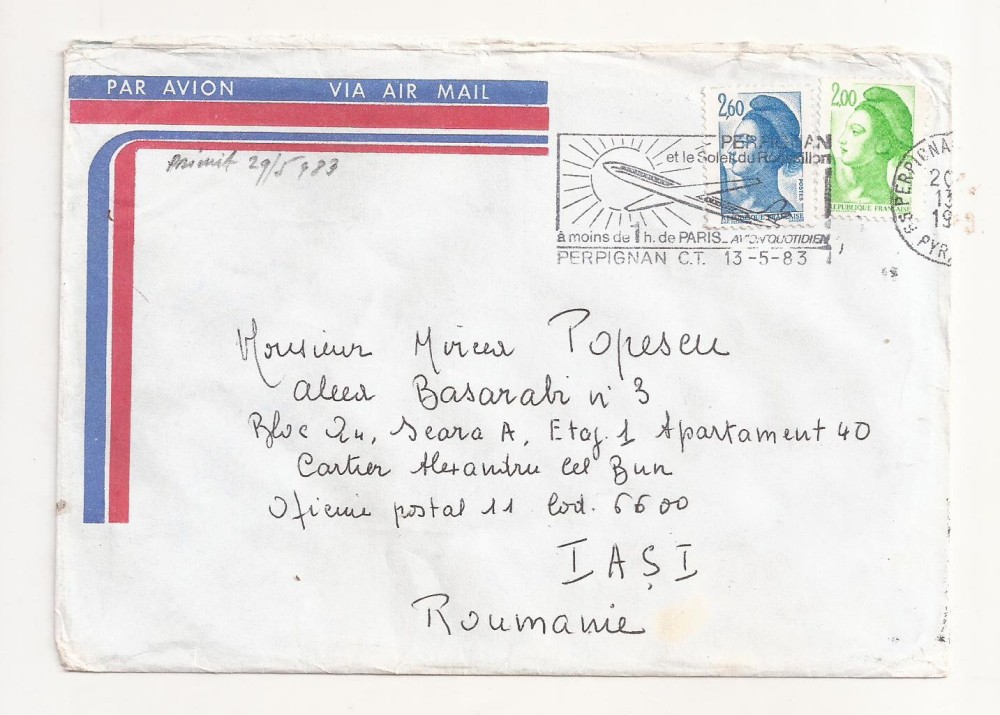 PAR AVION VIA AIR MAIL
2,60 2,00
Primit 29/5 983
PERPIGNAN
et le Soleil du Roussillon
POSTES
REPUBLIQUE FRANÇAISE REPUBLIQUE FRANÇAISE
à moins de 1 h. de PARIS_ AVION QUOTIDIEN
PERPIGNAN C.T. 13-5-83
PERPIGNA
20
13
19
PYR.
Monsieur Mircea Popescu
aleea Basarabi n° 3
Bloc 2u, Scara A, Etaj 1 Apartament 40
Cartier Alexandru cel Bun
Oficiul postal 11 Cod. 6600
IAȘI
Roumanie